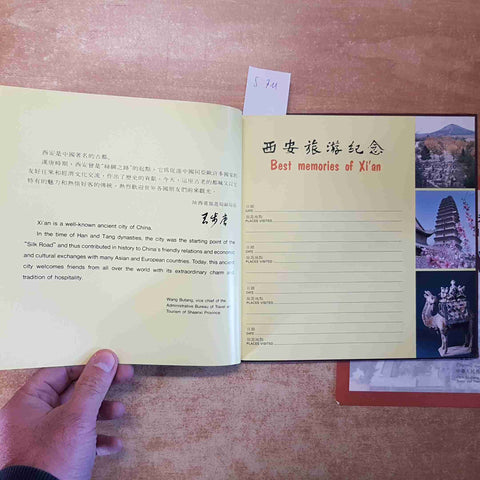 5 711
西安是中國著名的古都。
漢唐時期，西安曾是“絲綢之路”的起點，它爲促進中國同亞歐許多國家的
友好往來和經濟文化交流，作出了歷史的貢獻。今天，這座古老的都城又以它
特有的魅力和熱情好客的傳統，熱烈歡迎世界各國朋友們前來觀光。
陝西省旅遊局副局長
Xi'an is a well-known ancient city of China.
In the time of Han and Tang dynasties, the city was the starting point of the
"Silk Road" and thus contributed in history to China's friendly relations and economic
and cultural exchanges with many Asian and European countries. Today, this ancient
city welcomes friends from all over the world with its extraordinary charm and
tradition of hospitality.
Wang Butang, vice chief of the
Administrative Bureau of Travel and
Tourism of Shaanxi Province.
西安旅游纪念
Best memories of Xi'an
日期
DATE
旅遊地點
PLACES VISITED
日期
DATE
旅遊地點
PLACES VISITED
日期
DATE
旅遊地點
PLACES VISITED
日期
DATE
旅遊地點
PLACES VISITED